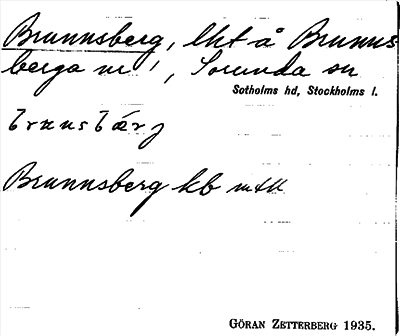 Brunnsberg, lht å Brunns
berga nr 1, Sorunda sn
Sotholms hd, Stockholms l.
Brunnsberg kb
GÖRAN ZETTERBERG 1935.